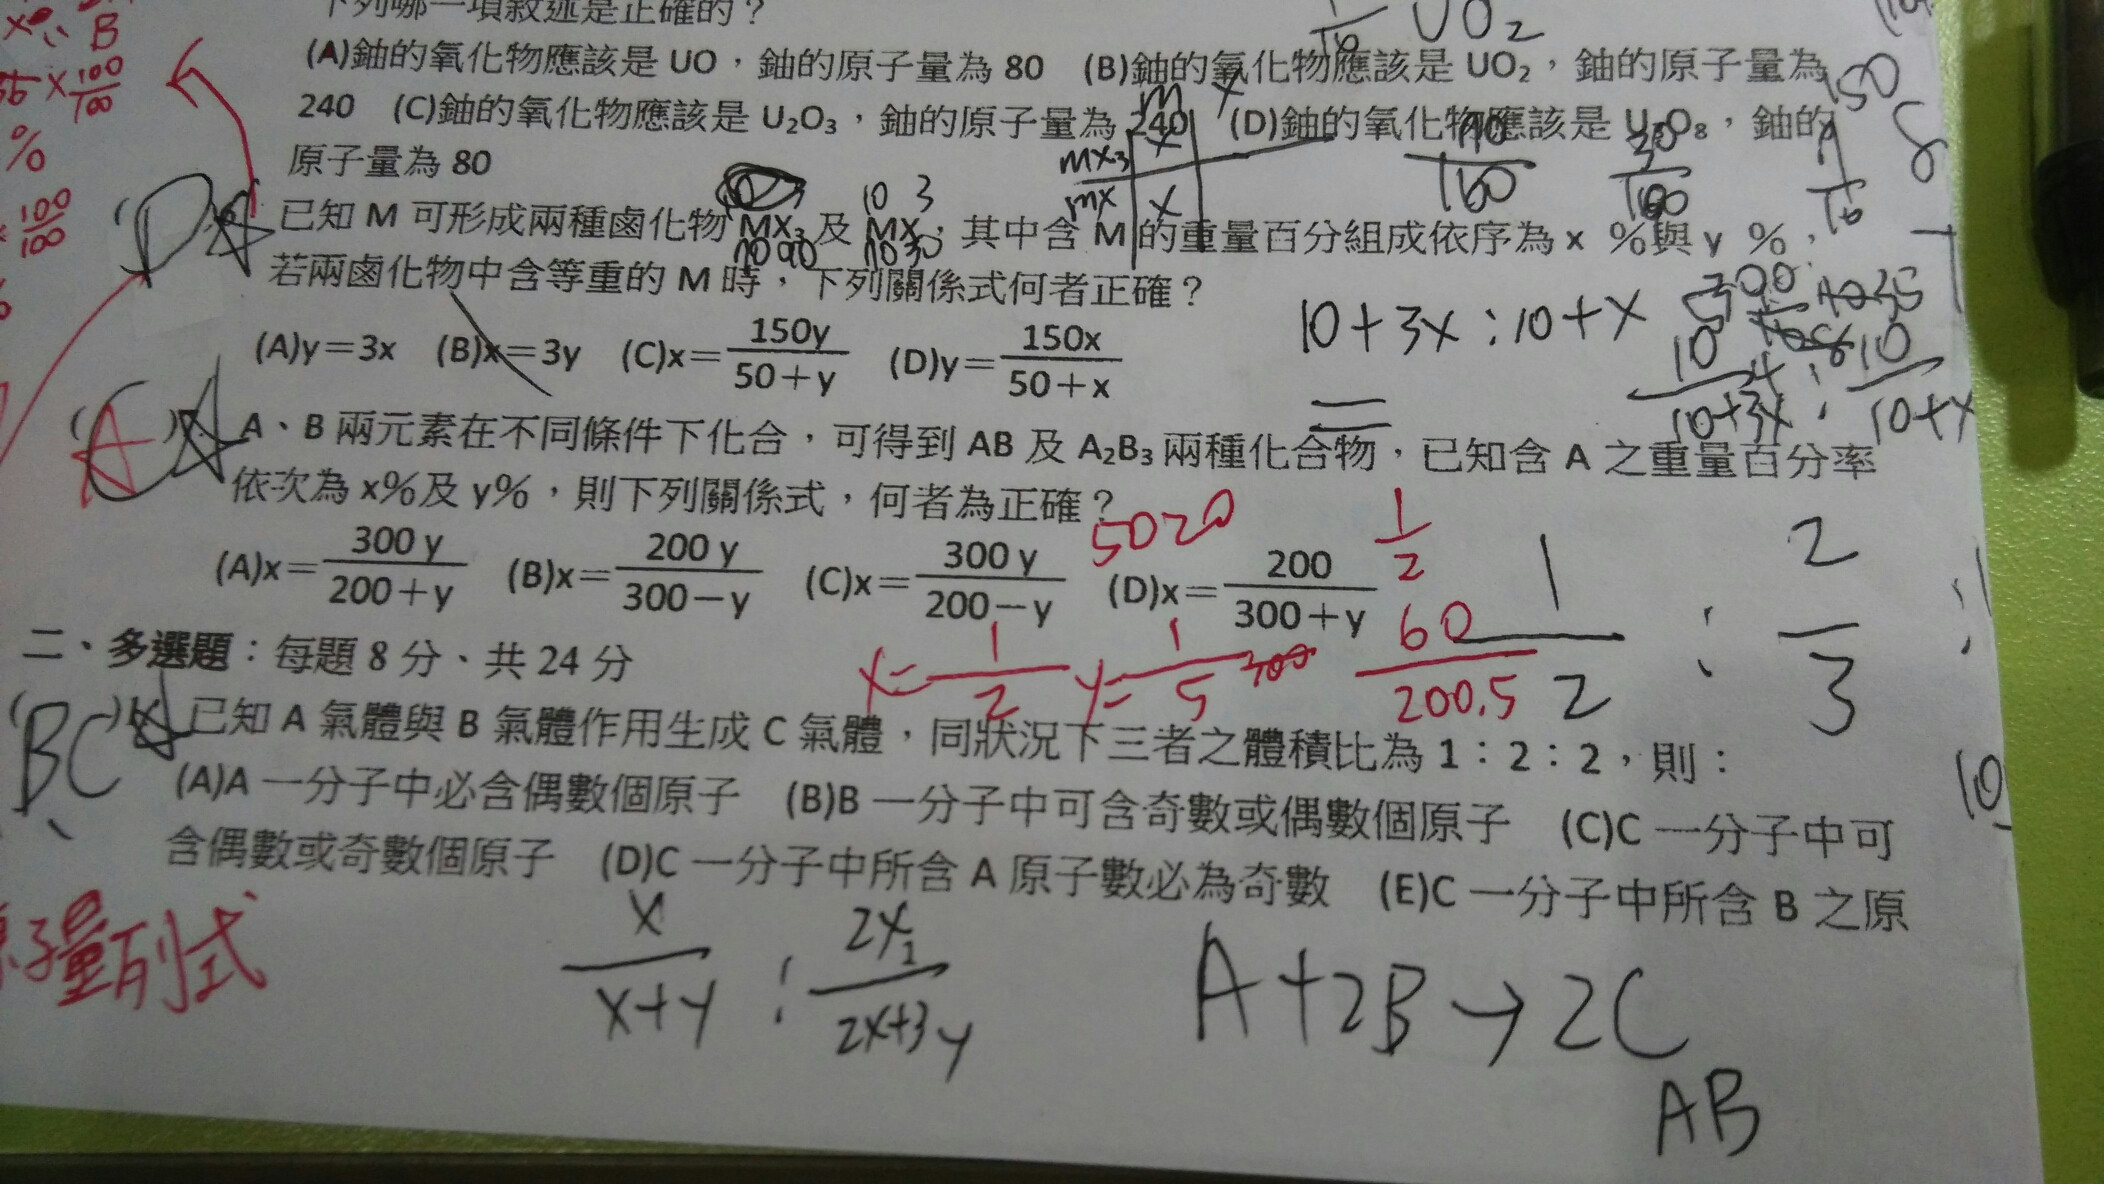 下列哪一項敘述是正確的？
(A)鈾的氧化物應該是 UO，鈾的原子量為 80 (B)鈾的氧化物應該是 UO₂，鈾的原子量為
240 (C)鈾的氧化物應該是 U₂O₃，鈾的原子量為 240 (D)鈾的氧化物應該是 U₃O₈，鈾的
原子量為 80
UO₂
X
B
100
100
%
100
100
(D)
已知 M 可形成兩種鹵化物 MX₃ 及 MX，其中含 M 的重量百分組成依序為 x %與 y %，
若兩鹵化物中含等重的 M 時，下列關係式何者正確？
(A)y＝3x (B)x＝3y (C)x＝150y/50＋y (D)y＝150x/50＋x
m X
mx₃ X
mx X
10 3
10 90 10 30
10+3X:10+X
10/10+3X : 10/10+X
(A)
A、B 兩元素在不同條件下化合，可得到 AB 及 A₂B₃ 兩種化合物，已知含 A 之重量百分率
依次為 x%及 y%，則下列關係式，何者為正確？
(A)x＝300 y/200＋y (B)x＝200 y/300－y (C)x＝300 y/200－y (D)x＝200/300＋y
5020
1/2
60/200.5
X=1/2 y=1/5
1/2 : 2/3
二、多選題：每題 8 分、共 24 分
(BC)
已知 A 氣體與 B 氣體作用生成 C 氣體，同狀況下三者之體積比為 1：2：2，則：
(A)A 一分子中必含偶數個原子 (B)B 一分子中可含奇數或偶數個原子 (C)C 一分子中可
含偶數或奇數個原子 (D)C 一分子中所含 A 原子數必為奇數 (E)C 一分子中所含 B 之原
10
子量列式
X/X+y : 2X/2X+3y
A+2B→2C
AB